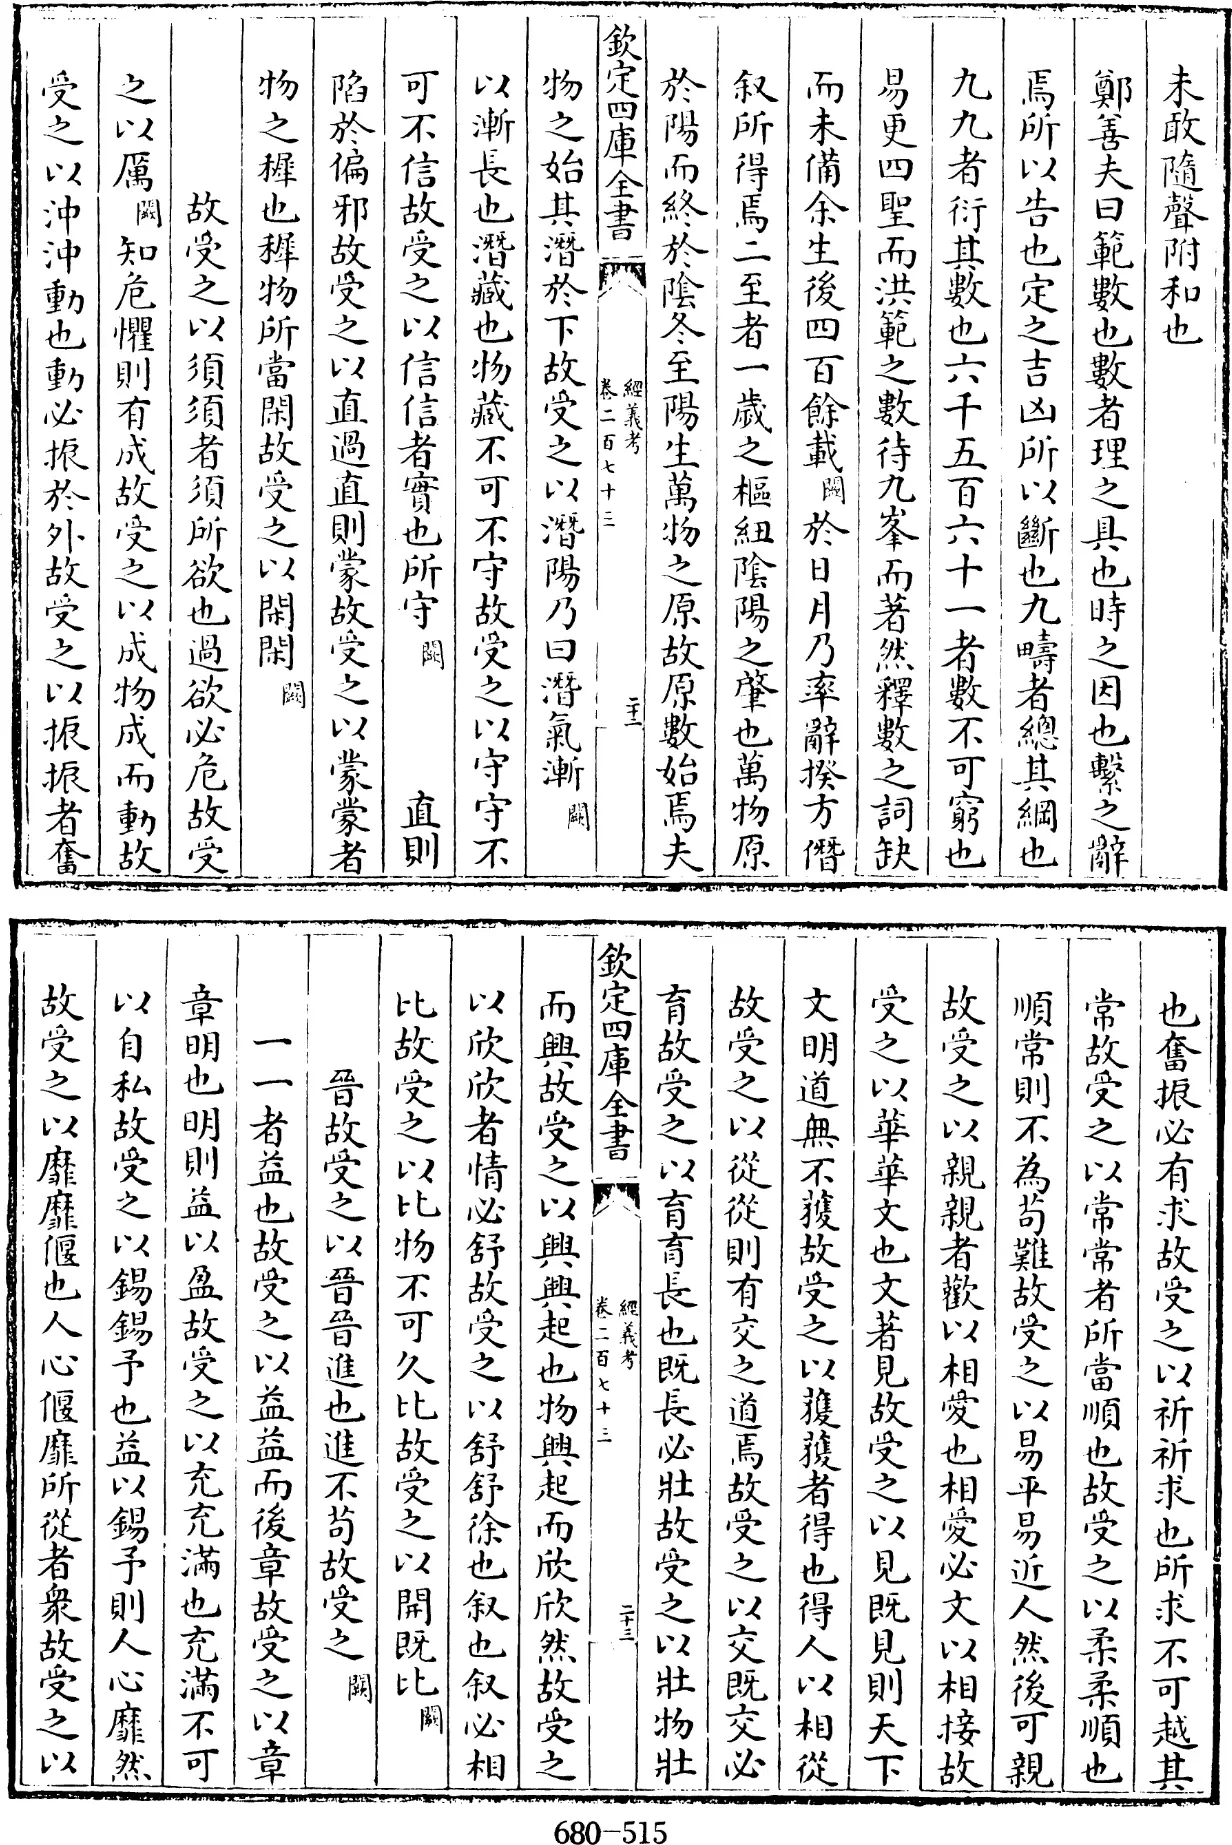 未敢隨聲附和也
鄭善夫曰範數也數者理之具也時之因也繫之辭
焉所以告也定之吉凶所以斷也九疇者總其綱也
九九者衍其數也六千五百六十一者數不可窮也
易更四聖而洪範之數待九峯而著然釋數之詞缺
而未備余生後四百餘載闕於日月乃率辭揆方僭
叙所得焉二至者一歲之樞紐陰陽之肇也萬物原
於陽而終於陰冬至陽生萬物之原故原數始焉夫
欽定四庫全書
經義考
卷二百七十三
二十二
物之始其潛於下故受之以潛陽乃曰潛氣漸闕
以漸長也潛藏也物藏不可不守故受之以守守不
可不信故受之以信信者實也所守闕 直則
陷於偏邪故受之以直過直則蒙故受之以蒙蒙者
物之穉也穉物所當閑故受之以閑閑闕
故受之以須須者須所欲也過欲必危故受
之以厲闕知危懼則有成故受之以成物成而動故
受之以沖沖動也動必振於外故受之以振振者奮
也奮振必有求故受之以祈祈求也所求不可越其
常故受之以常常者所當順也故受之以柔柔順也
順常則不為苟難故受之以易平易近人然後可親
故受之以親親者歡以相愛也相愛必文以相接故
受之以華華文也文著見故受之以見既見則天下
文明道無不獲故受之以獲獲者得也得人以相從
故受之以從從則有交之道焉故受之以交既交必
育故受之以育育長也既長必壯故受之以壯物壯
欽定四庫全書
經義考
卷二百七十三
二十三
而興故受之以興興起也物興起而欣欣然故受之
以欣欣者情必舒故受之以舒舒徐也叙也叙必相
比故受之以比物不可久比故受之以開既比闕
晉故受之以晉晉進也進不苟故受之闕
一一者益也故受之以益益而後章故受之以章
章明也明則益以盈故受之以充充滿也充滿不可
以自私故受之以錫錫予也益以錫予則人心靡然
故受之以靡靡偃也人心偃靡所從者衆故受之以
680-515